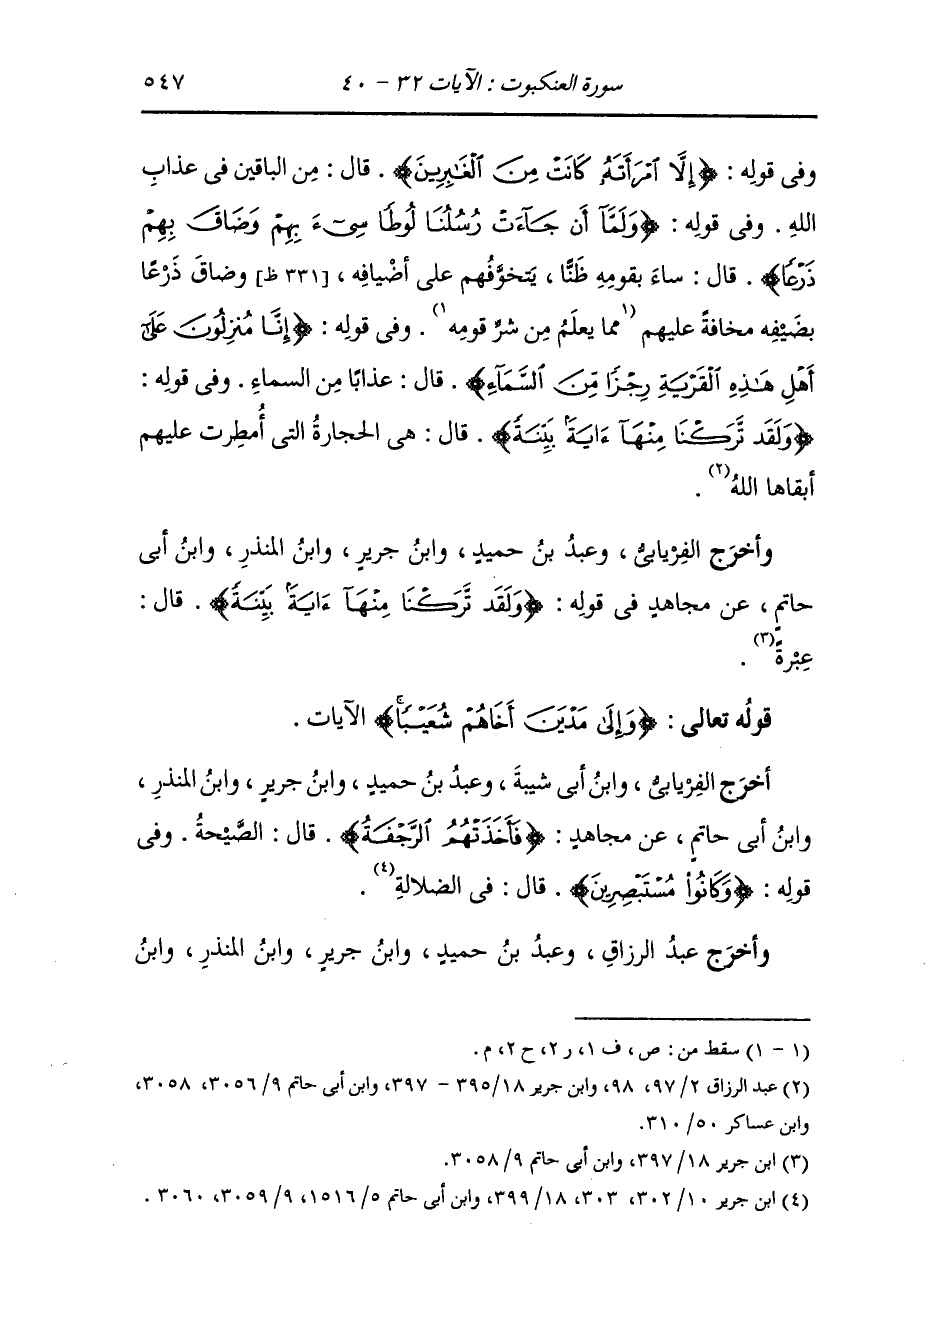 سورة العنكبوت : الآيات ٣٢ - ٤٠ ٥٤٧
وفى قولِه : ﴿إِلَّا ٱمْرَأَتَهُۥ كَانَتْ مِنَ ٱلْغَٰبِرِينَ﴾ . قال : مِن الباقين فى عذابِ
اللهِ . وفى قولِه : ﴿وَلَمَّآ أَن جَآءَتْ رُسُلُنَا لُوطًا سِىٓءَ بِهِمْ وَضَاقَ بِهِمْ
ذَرْعًا﴾ . قال : ساءَ بقومِه ظَنًّا ، يَتخوَّفُهم على أضْيافِه ، [٣٣١ظ] وضاقَ ذَرْعًا
بضَيْفِه مخافةً عليهم (١مما يعلَمُ مِن شرِّ قومِه١) . وفى قولِه : ﴿إِنَّا مُنزِلُونَ عَلَىٰٓ
أَهْلِ هَٰذِهِ ٱلْقَرْيَةِ رِجْزًا مِّنَ ٱلسَّمَآءِ﴾ . قال : عذابًا مِن السماءِ . وفى قولِه :
﴿وَلَقَد تَّرَكْنَا مِنْهَآ ءَايَةًۢ بَيِّنَةً﴾ . قال : هى الحجارةُ التى أُمطِرت عليهم
أبقاها اللهُ(٢) .
وأخرَج الفِرْيابىُّ ، وعبدُ بنُ حميدٍ ، وابنُ جريرٍ ، وابنُ المنذرِ ، وابنُ أبى
حاتمٍ ، عن مجاهدٍ فى قولِه : ﴿وَلَقَد تَّرَكْنَا مِنْهَآ ءَايَةًۢ بَيِّنَةً﴾ . قال :
عِبْرةً(٣) .
قولُه تعالى : ﴿وَإِلَىٰ مَدْيَنَ أَخَاهُمْ شُعَيْبًا﴾ الآيات .
أخرَج الفِرْيابىُّ ، وابنُ أبى شيبةَ ، وعبدُ بنُ حميدٍ ، وابنُ جريرٍ ، وابنُ المنذرِ ،
وابنُ أبى حاتمٍ ، عن مجاهدٍ : ﴿فَأَخَذَتْهُمُ ٱلرَّجْفَةُ﴾ . قال : الصَّيْحةُ . وفى
قولِه : ﴿وَكَانُوا۟ مُسْتَبْصِرِينَ﴾ . قال : فى الضلالةِ(٤) .
وأخرَج عبدُ الرزاقِ ، وعبدُ بنُ حميدٍ ، وابنُ جريرٍ ، وابنُ المنذرِ ، وابنُ
(١ - ١) سقط من : ص ، ف ١، ر ٢، ح ٢، م .
(٢) عبد الرزاق ٢/ ٩٧، ٩٨، وابن جرير ٣٩٥/١٨ - ٣٩٧، وابن أبى حاتم ٩/ ٣٠٥٦، ٣٠٥٨،
وابن عساكر ٥٠/ ٣١٠.
(٣) ابن جرير ١٨/ ٣٩٧، وابن أبى حاتم ٩/ ٣٠٥٨.
(٤) ابن جرير ١٠/ ٣٠٢، ٣٠٣، ١٨/ ٣٩٩، وابن أبى حاتم ٥/ ١٥١٦، ٩/ ٣٠٥٩، ٣٠٦٠ .